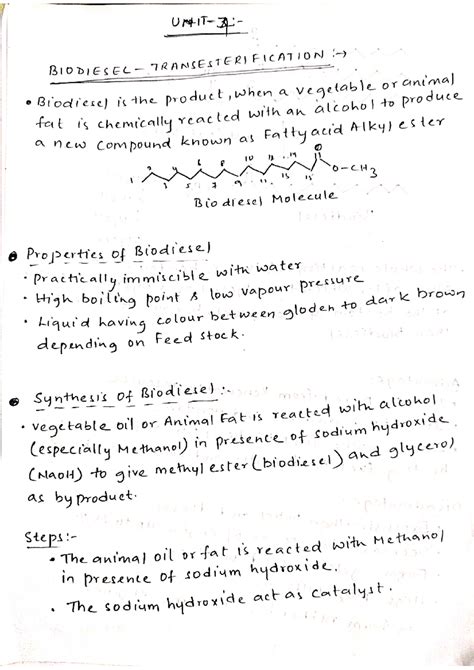 UNIT-3:-
BIODIESEL - TRANSESTERIFICATION :→
• Biodiesel is the product, when a vegetable or animal
fat is chemically reacted with an alcohol to produce
a new compound known as Fatty acid Alkyl ester
O
O-CH3
Biodiesel Molecule
Properties of Biodiesel
• Practically immiscible with water
• High boiling point & low vapour pressure
• Liquid having colour between gloden to dark brown
depending on Feed stock.
Synthesis of Biodiesel :-
• vegetable oil or Animal Fat is reacted with alcohol
(especially Methanol) in presence of sodium hydroxide
(NaOH) to give methyl ester (biodiesel) and glycerol
as byproduct.
Steps:-
• The animal oil or fat is reacted with Methanol
in presence of sodium hydroxide.
• The sodium hydroxide act as catalyst.